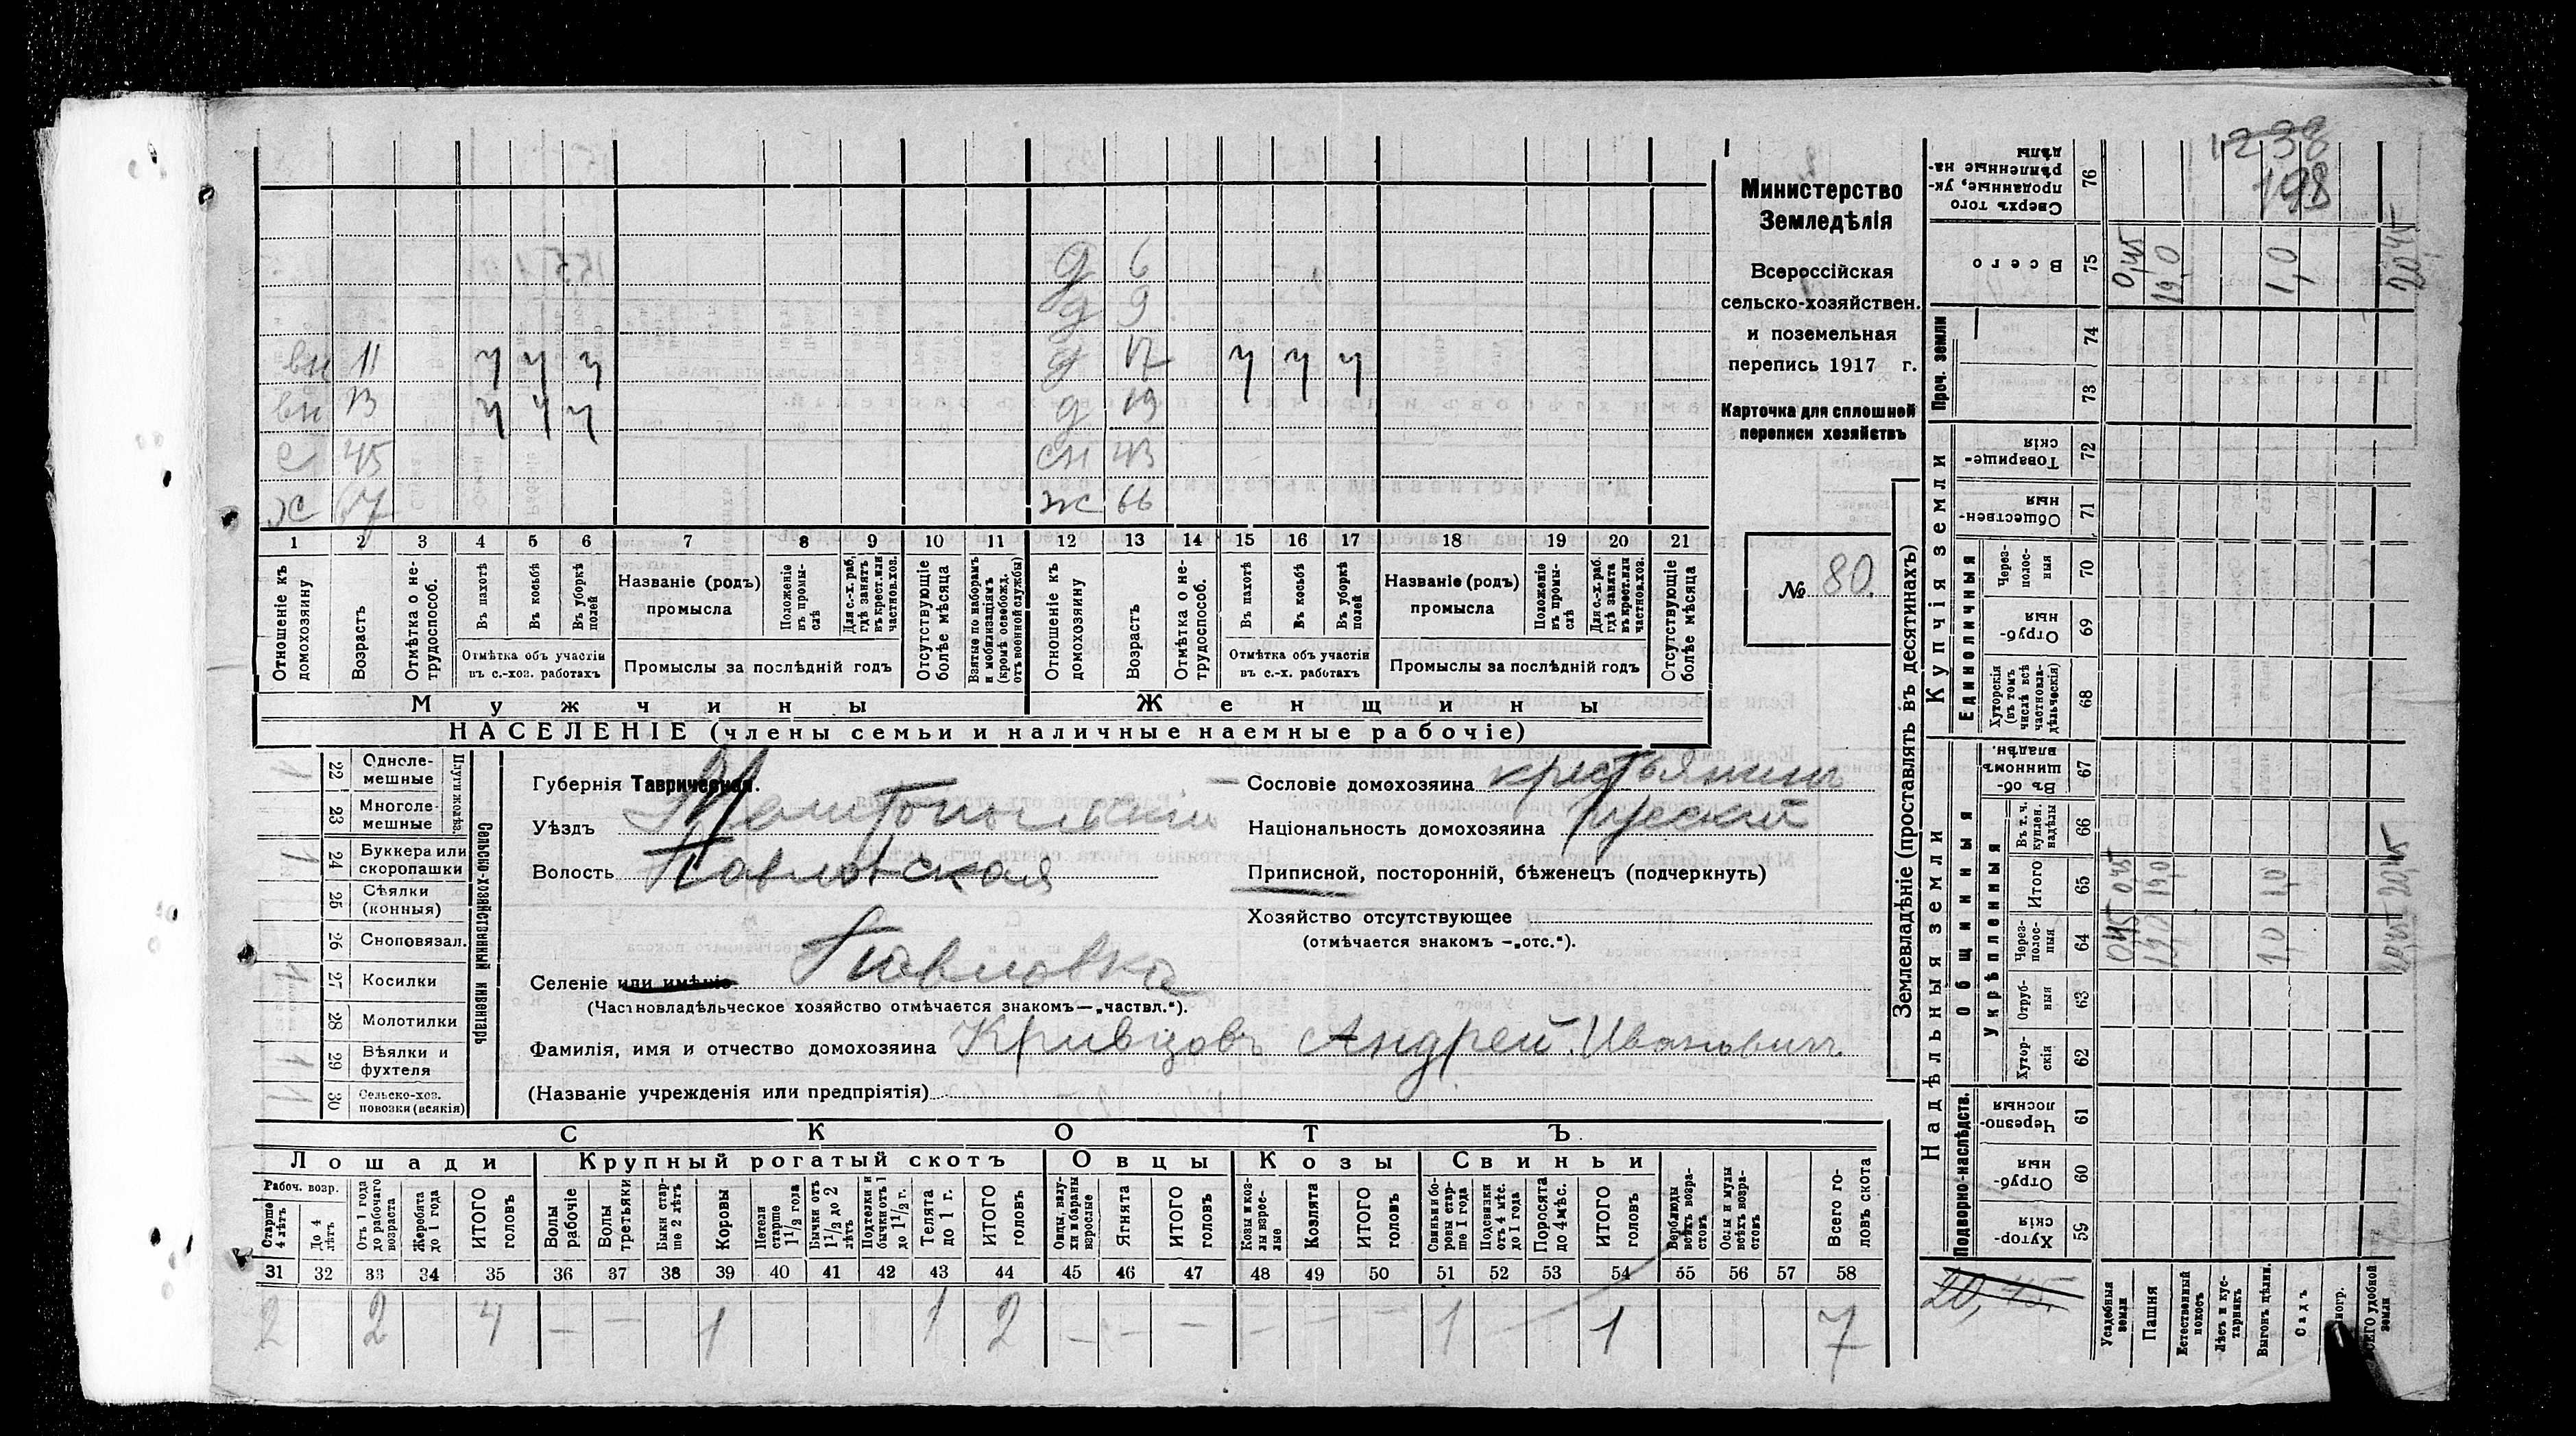 1238
198
Министерство
Земледѣлія
Всероссійская
сельско-хозяйствен.
и поземельная
перепись 1917 г.
Карточка для сплошной
переписи хозяйствъ
№ 80.
д 6
д 9
вн 11 у у у д 17 у у у
вн 13 у у у д 19
с 45 сн 43
ж 67 ж 66
1 2 3 4 5 6 7 8 9 10 11 12 13 14 15 16 17 18 19 20 21
Отношеніе къ домохозяину
Возрастъ
Отмѣтка о не-трудоспособ.
Въ пахотѣ
Въ косьбѣ
Въ уборкѣ полей
Отмѣтка объ участіи въ с.-хоз. работахъ
Названіе (родъ) промысла
Положеніе въ промы-слѣ
Для с.-х. раб. гдѣ занятъ въ крест. или частнов. хоз.
Промыслы за послѣдній годъ
Отсутствующіе болѣе мѣсяца
Взятые по наборамъ и мобилизаціямъ (кромѣ освобожд. отъ военной службы)
Отношеніе къ домохозяину
Возрастъ
Отмѣтка о не-трудоспособ.
Въ пахотѣ
Въ косьбѣ
Въ уборкѣ полей
Отмѣтка объ участіи въ с.-х. работахъ
Названіе (родъ) промысла
Положеніе въ промы-слѣ
Для с.-х. раб. гдѣ занята въ крест. или частнов. хоз.
Промыслы за послѣдній годъ
Отсутствующіе болѣе мѣсяца
Мужчины Женщины
НАСЕЛЕНІЕ (члены семьи и наличные наемные рабочіе)
Сельско-хозяйственный инвентарь
22 Одноле-мешные
23 Многоле-мешные
1 24 Буккера или скоропашки
25 Сѣялки (конныя)
26 Сноповязал.
1 27 Косилки
28 Молотилки
1 29 Вѣялки и фухтеля
1 30 Сельско-хоз. повозки (всякія)
Губернія Таврическая.
Уѣздъ Мелитопольскій
Волость Павловская
Селеніе или имѣніе Павловка
(Частновладѣльческое хозяйство отмѣчается знакомъ—„частвл.“).
Фамилія, имя и отчество домохозяина Кривцовъ Андрей Ивановичъ
(Названіе учрежденія или предпріятія)
Сословіе домохозяина крестьянинъ
Національность домохозяина русскій
Приписной, посторонній, бѣженецъ (подчеркнуть)
Хозяйство отсутствующее
(отмѣчается знакомъ —„отс.“).
СКОТЪ
Лошади Крупный рогатый скотъ Овцы Козы Свиньи
Рабоч. возр.
Старше 4 лѣтъ
До 4 лѣтъ
Отъ 1 года до рабочаго возраста
Жеребята до 1 года
ИТОГО головъ
Волы рабочіе
Волы третьяки
Быки стар-ше 2 лѣтъ
Коровы
Нетели старше 1 1/2 года
Бычки отъ 1 1/2 до 2 лѣтъ
Подтелки и бычки отъ 1 до 1 1/2 г.
Телята до 1 г.
ИТОГО головъ
Овцы, валу-хи и бараны взрослые
Ягнята
ИТОГО головъ
Козы и коз-лы взрос-лые
Козлята
ИТОГО головъ
Свиньи и бо-ровы стар-ше 1 года
Подсвинки отъ 4 мѣс. до 1 года
Поросята до 4 мѣс.
ИТОГО головъ
Верблюды всѣхъ возра-стовъ
Ослы и мулы всѣхъ возра-стовъ
Всего го-ловъ скота
31 32 33 34 35 36 37 38 39 40 41 42 43 44 45 46 47 48 49 50 51 52 53 54 55 56 57 58
2 2 4 — — 1 1 2 — — — — — — 1 — 1 7
Землевладѣніе (проставлять въ десятинахъ)
Сверхъ того проданные, ук-рѣпленные на-дѣлы 76
Всего 75 0,45 19,0 1,0 20,45
Проч. земли 74 73
Купчія земли
Товарище-скія 72
Обществен-ныя 71
Единоличныя
Через-полос-ныя 70
Отруб-ныя 69
Хуторскія (въ томъ числѣ всѣ частновла-дѣльческія) 68
Надѣльныя земли
Общинныя
Въ об-щинномъ владѣн. 67
Укрѣпленныя
Въ т. ч. куплен. надѣлы 66
Итого 65 0,45 19,0 1,0 20,45
Через-полос-ныя 64 0,45 19,0 1,0 20,45
Отруб-ныя 63
Хутор-скія 62
Подворно-наслѣдств.
Черезпо-лосныя 61
Отруб-ныя 60
Хутор-скія 59
20,45
Усадебныя земли
Пашня
Естественный покосъ
Лѣсъ и кус-тарникъ
Выгонъ дѣлин.
Садъ